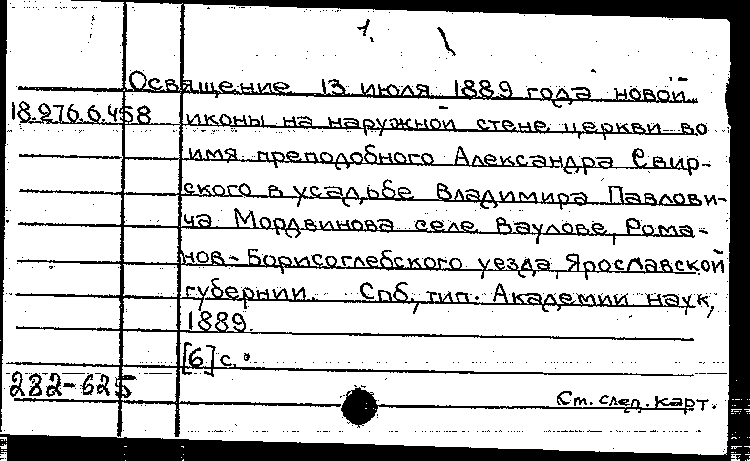 1.
Освящение 13 июля 1889 года новой
18.276.6.458 иконы на наружной стене церкви во
имя преподобного Александра Свир-
ского в усадьбе Владимира Павлови-
ча Мордвинова селе Ваулове, Рома-
нов-Борисоглебского уезда, Ярославской
губернии. Спб, тип. Академии наук,
1889.
[6] с.
282-625
См. след. карт.